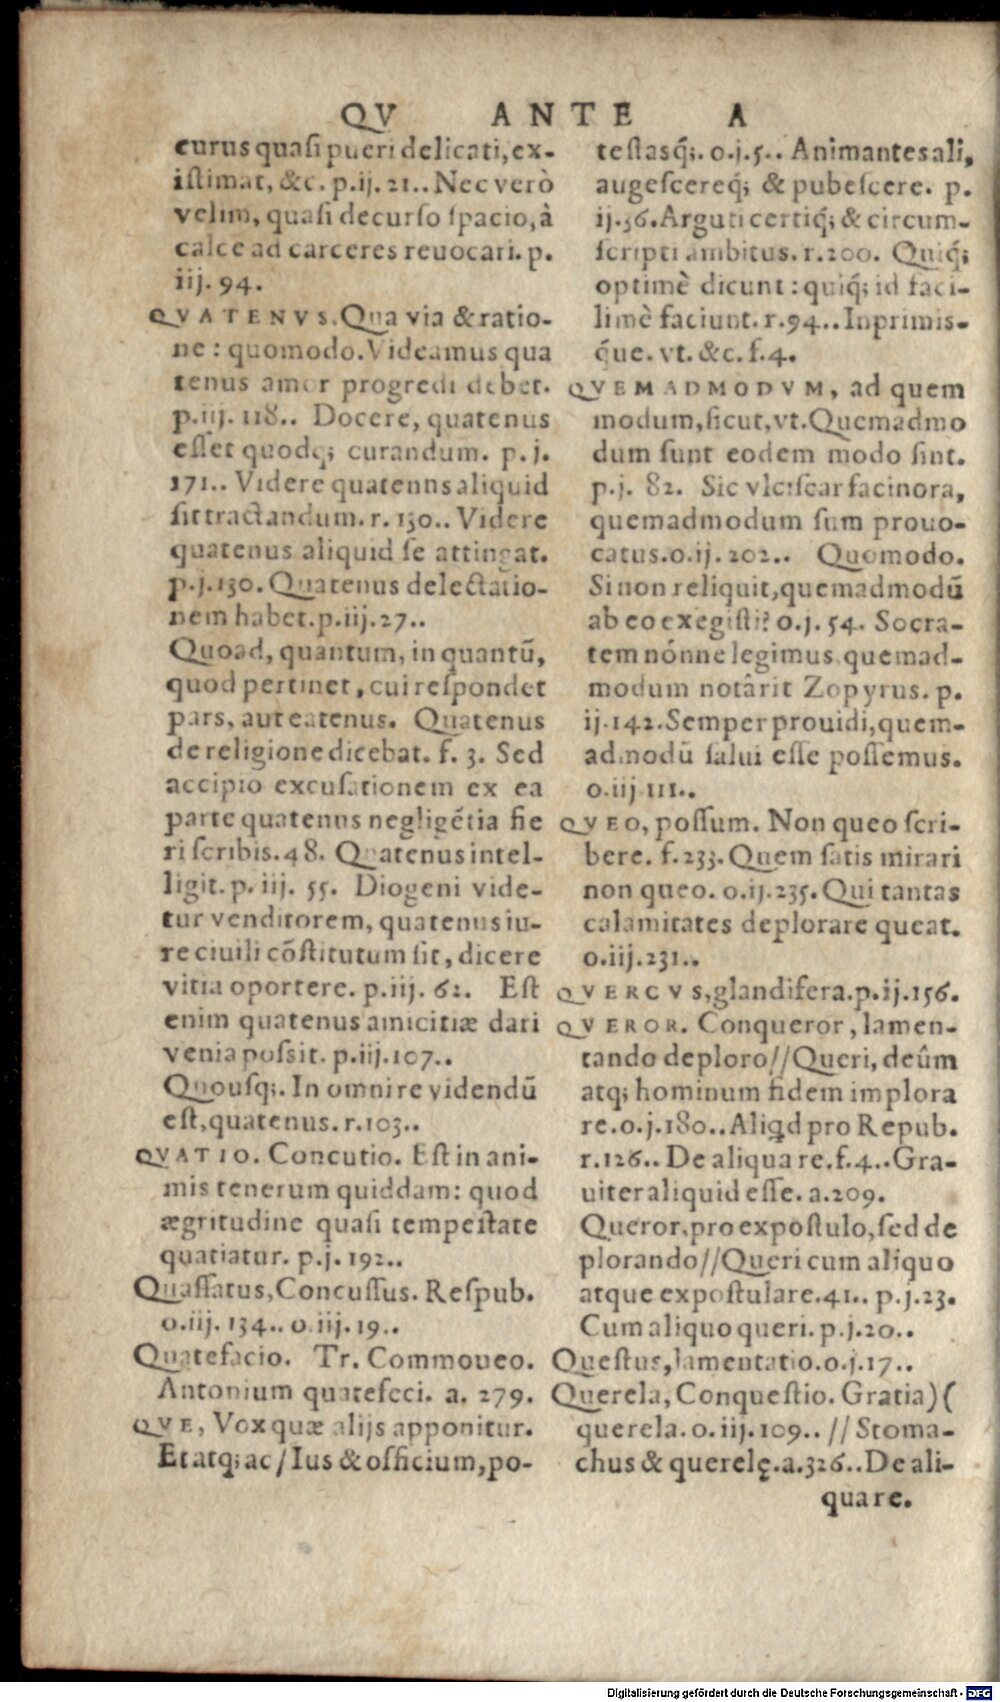 QV ANTE A
curus quaſi pueri delicati, ex-
iſtimat, &c. p.ij. 21.. Nec verò
velim, quaſi decurſo ſpacio, à
calce ad carceres reuocari. p.
iij. 94.
QVATENVS. Qua via & ratio-
ne: quomodo. Videamus qua
tenus amor progredi debet.
p.iij. 118.. Docere, quatenus
eſſet quodq; curandum. p. j.
171.. Videre quatenns aliquid
ſit tractandum. r. 130.. Videre
quatenus aliquid ſe attingat.
p.j.130. Quatenus delectatio-
nem habet. p.iij.27..
Quoad, quantum, in quantũ,
quod pertinet, cui reſpondet
pars, aut eatenus. Quatenus
de religione dicebat. f. 3. Sed
accipio excuſationem ex ea
parte quatenus negligẽtia fie
ri ſcribis.48. Quatenus intel-
ligit. p. iij. 55. Diogeni vide-
tur venditorem, quatenus iu-
re ciuili cõſtitutum ſit, dicere
vitia oportere. p.iij. 62. Eſt
enim quatenus amicitiæ dari
venia poſsit. p.iij.107..
Quouſq;. In omni re videndũ
eſt, quatenus. r.103..
QVATIO. Concutio. Eſt in ani-
mis tenerum quiddam: quod
ægritudine quaſi tempeſtate
quatiatur. p.j. 192..
Quaſſatus, Concuſſus. Reſpub.
o.iij. 134.. o.iij. 19..
Quatefacio. Tr. Commoueo.
Antonium quatefeci. a. 279.
QVE, Vox quæ alijs apponitur.
Et atq; ac / Ius & officium, po-
teſtasq́;. o.j.5.. Animantes ali,
augeſcereq́; & pubeſcere. p.
ij.36. Arguti certiq́; & circum-
ſcripti ambitus. r.200. Quiq́;
optimè dicunt: quiq́; id faci-
limè faciunt. r.94.. Inprimis-
q́ue. vt. &c. f.4.
QVEMADMODVM, ad quem
modum, ſicut, vt. Quemadmo
dum ſunt eodem modo ſint.
p.j. 82. Sic vlciſcar facinora,
quemadmodum ſum prouo-
catus. o.ij. 202.. Quomodo.
Si non reliquit, quemadmodũ
ab eo exegiſti? o.j. 54. Socra-
tem nónne legimus quemad-
modum notârit Zopyrus. p.
ij.142. Semper prouidi, quem-
admodũ ſalui eſſe poſſemus.
o.iij 111..
QVEO, poſſum. Non queo ſcri-
bere. f.233. Quem ſatis mirari
non queo. o.ij.235. Qui tantas
calamitates deplorare queat.
o.iij.231..
QVERCVS, glandifera. p.ij.156.
QVEROR. Conqueror, lamen-
tando deploro // Queri, deûm
atq; hominum fidem implora
re. o.j.180.. Aliqd pro Repub.
r.126.. De aliqua re. f.4.. Gra-
uiter aliquid eſſe. a.209.
Queror, pro expoſtulo, ſed de
plorando // Queri cum aliquo
atque expoſtulare.41.. p.j.23.
Cum aliquo queri. p.j.20..
Queſtus, lamentatio. o.j.17..
Querela, Conqueſtio. Gratia )(
querela. o.iij.109.. // Stoma-
chus & querelę. a.326.. De ali-
qua re.
Digitalisierung gefördert durch die Deutsche Forschungsgemeinschaft - DFG